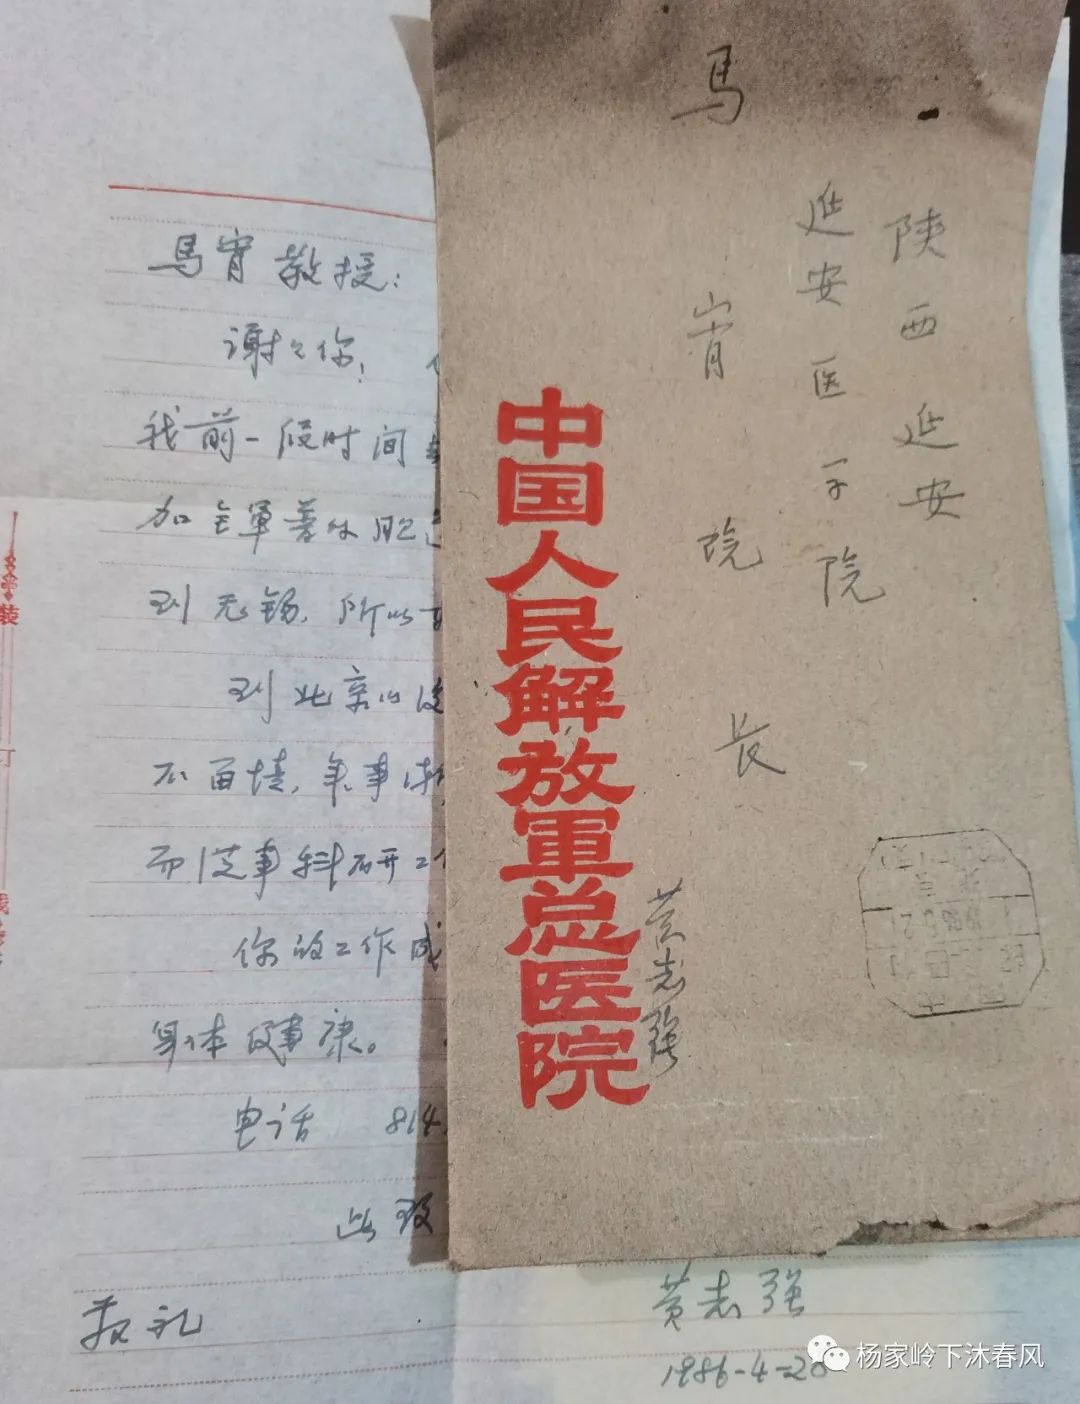 馬
陕西延安
延安医学院
馬甯院长
中国人民解放軍总医院
黄志强
馬甯教授：
谢々你！
我前一段时间
加全軍普外胆道
到无锡，所以
到北京以後
不百境，年事
而從事科研工作
你的工作成
身体健康。
电话 814
此致
敬礼
黄志强
1986-4-28
装
订
线
杨家岭下沐春风